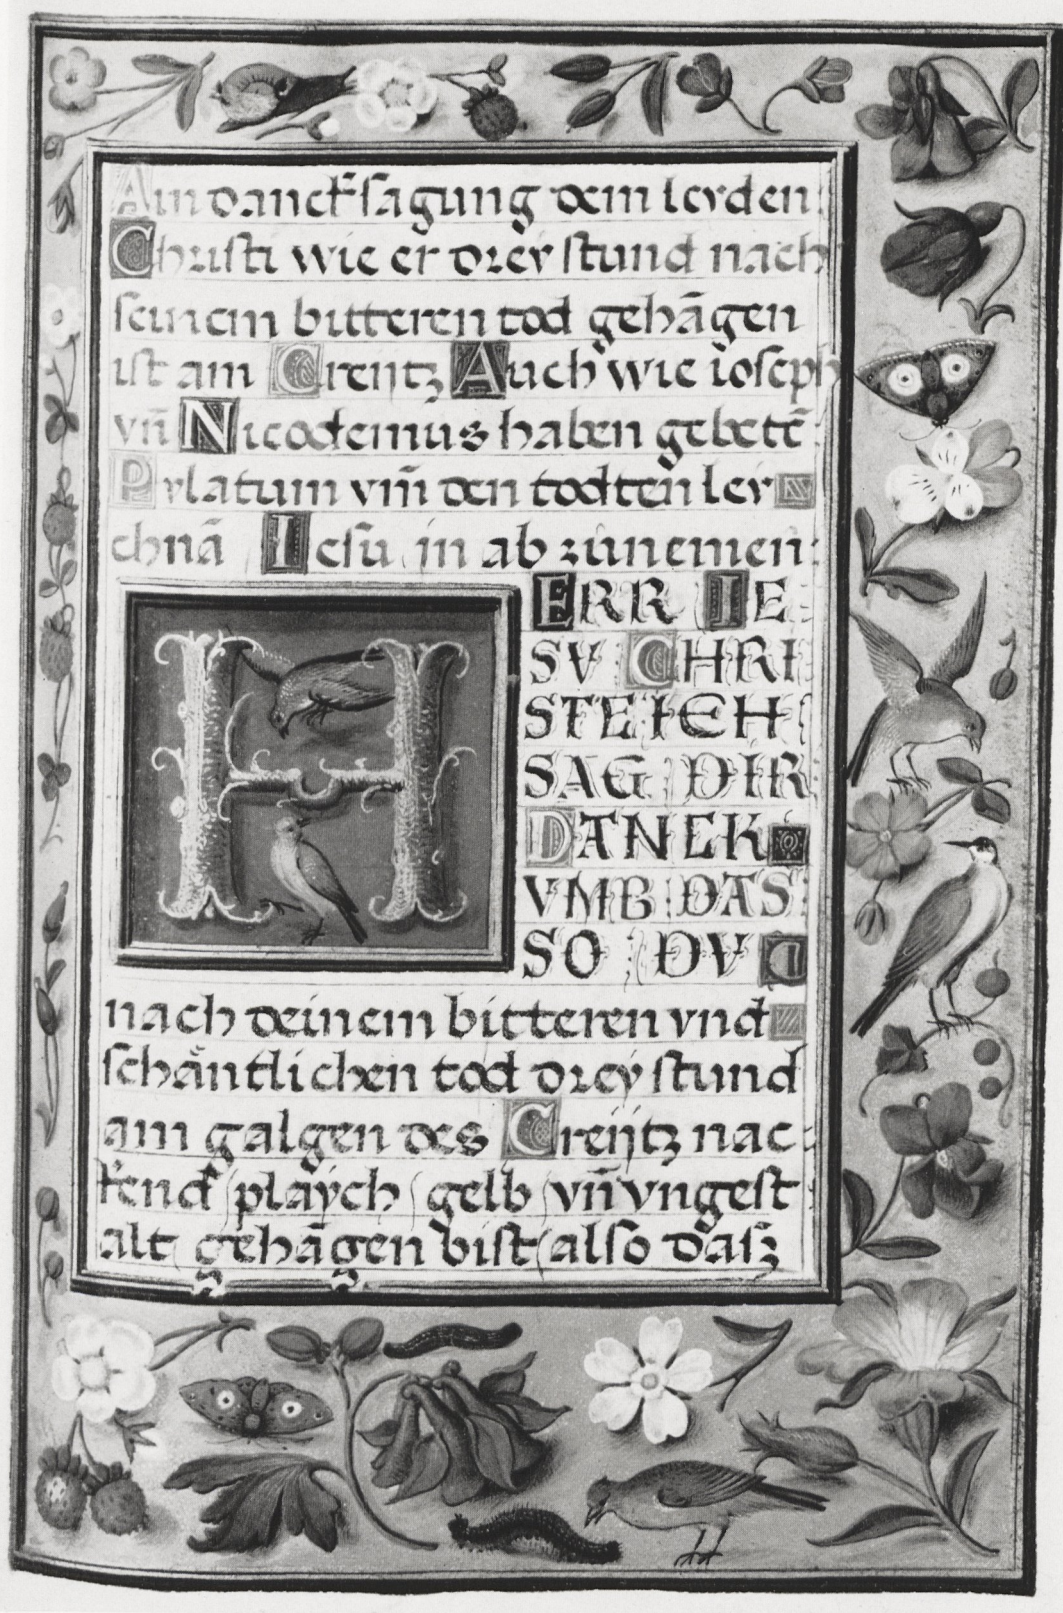 Ain danckſagung dem leyden
Chriſti wie er drey ſtund nach
ſeinem bitteren tod gehāgen
iſt am Creijtz Auch wie ioſeph
vn̄ Nicodemus haben gebetē
Pylatum vm̄ den todten ley
chnā Ieſu in ab zunemen
HERR IE
SV CHRI
STE ICH
SAG DIR
DANCK
VMB DAS
SO DV
nach deinem bitteren vnd
ſchäntlichen tod drey ſtund
am galgen des Creijtz nac
kend playch gelb vn̄ vngeſt
alt gehāgen biſt alſo daſz